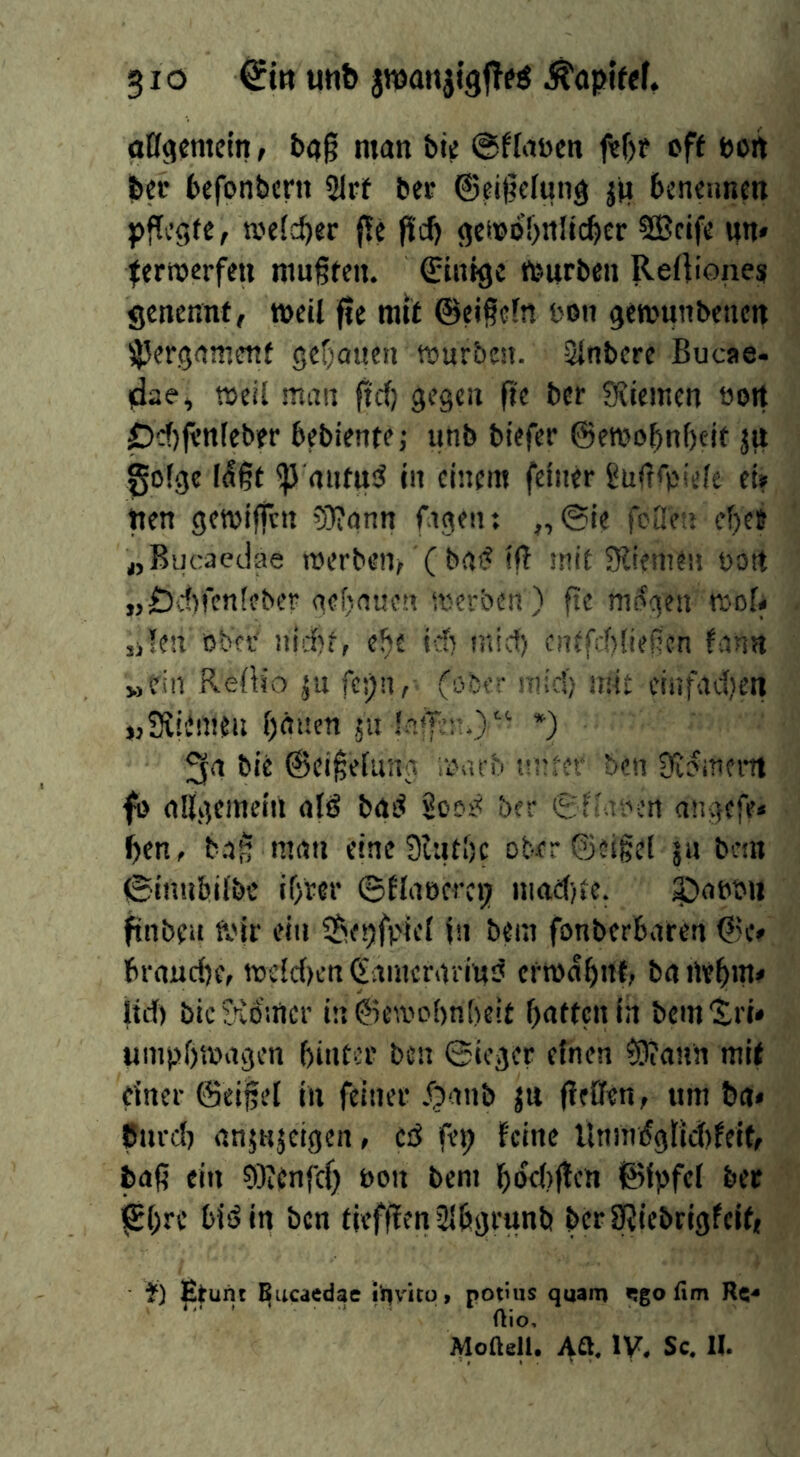 310 Ein und zwanzigstes Kapitel.
allgemein, daß man die Sklaven sehr oft von
der besondern Art der Geißelung zu benennen
pflegte, welcher sie sich gewöhnlicher Weise un-
terwerfen mußten. Einige wurden Restiones
genennt, weil sie mit Geißeln von gewundenen
Pergament gehauen wurden. Andere Bucae-
dae, weil man sich gegen sie der Riemen von
Ochsenleder bediente; und dieser Gewohnheit zu
Folge läßt Plautus in einem seiner Lustspiele ei-
nen gewissen Mann sagen: „Sie sollen eher
„Bucaedae werden, (das ist mit Riemen von
„Ochsenleder gehauen werden) sie mögen wol-
„len oder nicht, ehe ich mich entschließen kann
„ein Restio zu seyn, (oder mich mit einfachen
„Riemen hauen zu lassen.)“ *)
Ja die Geißelung ward unter den Römern
so allgemein als das Loos der Sklaven angese-
hen, daß man eine Ruthe oder Geißel zu dem
Sinnbilde ihrer Sklaverey machte. Davon
finden wir ein Beyspiel in dem sonderbaren Ge-
brauche, welchen Camerarius erwähnt, da nehm-
lich die Römer in Gewohnheit hatten in dem Tri-
umphwagen hinter den Sieger einen Mann mit
einer Geißel in seiner Hand zu stellen, um da-
durch anzuzeigen, es sey keine Unmöglichkeit,
daß ein Mensch von dem höchsten Gipfel der
Ehre bis in den tiefsten Abgrund der Niedrigkeit,
*) Erunt Bucaedae invito, potius quam ego sim Re-
stio,
Mostell. Act. IV. Sc. II.